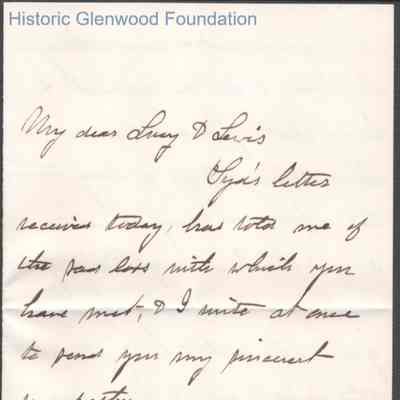 Historic Glenwood Foundation
My dear Lucy & Lewis
Syd's letter
received today, has told me of
the sad loss with which you
have met, & I write at once
to send you my sincerest
sympathy